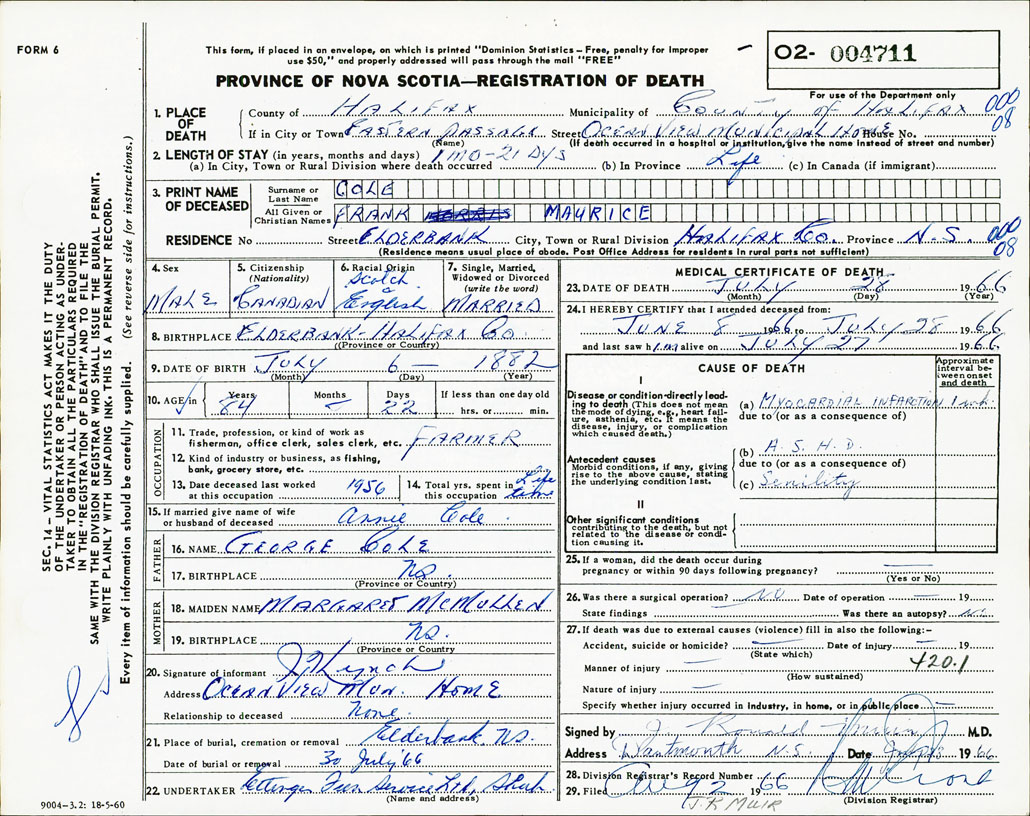 FORM 6
This form, if placed in an envelope, on which is printed "Dominion Statistics – Free, penalty for improper
use $50," and properly addressed will pass through the mail "FREE"
O2- 004711
PROVINCE OF NOVA SCOTIA—REGISTRATION OF DEATH
For use of the Department only
000
08
1. PLACE OF DEATH
County of HALIFAX Municipality of COUNTY OF HALIFAX
If in City or Town EASTERN PASSAGE Street OCEAN VIEW MUNICIPAL HOME House No.
(Name) (If death occurred in a hospital or institution, give the name instead of street and number)
2. LENGTH OF STAY (in years, months and days) 1 MO-21 DYS
(a) In City, Town or Rural Division where death occurred (b) In Province Life (c) In Canada (if immigrant)
3. PRINT NAME OF DECEASED
Surname or Last Name COLE
All Given or Christian Names FRANK MAURICE
RESIDENCE No Street ELDERBANK City, Town or Rural Division HALIFAX Co. Province N.S. 000
08
(Residence means usual place of abode. Post Office Address for residents in rural parts not sufficient)
4. Sex
MALE
5. Citizenship
(Nationality)
CANADIAN
6. Racial Origin
Scotch
&
English
7. Single, Married,
Widowed or Divorced
(write the word)
MARRIED
8. BIRTHPLACE ELDERBANK-HALIFAX Co
(Province or Country)
9. DATE OF BIRTH JULY 6 – 1882
(Month) (Day) (Year)
10. AGE in Years 84 Months – Days 22 If less than one day old
hrs. or min.
OCCUPATION
11. Trade, profession, or kind of work as
fisherman, office clerk, sales clerk, etc. FARMER
12. Kind of industry or business, as fishing,
bank, grocery store, etc.
13. Date deceased last worked
at this occupation 1956
14. Total yrs. spent in
this occupation Life time
15. If married give name of wife
or husband of deceased Annie Cole
FATHER
16. NAME GEORGE COLE
17. BIRTHPLACE NS.
(Province or Country)
MOTHER
18. MAIDEN NAME MARGARET MCMULLEN
19. BIRTHPLACE NS.
(Province or Country
20. Signature of informant Lynch
Address OCEAN VIEW MUN. HOME
Relationship to deceased None.
21. Place of burial, cremation or removal Elderbank, NS.
Date of burial or removal 30 July '66
22. UNDERTAKER Ettinger Fun Service Ltd, Shub.
(Name and address)
9004—3.2: 18-5-60
MEDICAL CERTIFICATE OF DEATH
23. DATE OF DEATH JULY 28 1966
(Month) (Day) (Year)
24. I HEREBY CERTIFY that I attended deceased from:
JUNE 8 1966 to JULY 28 1966
and last saw him alive on JULY 27 1966
CAUSE OF DEATH
Approximate
interval be-
tween onset
and death
I
Disease or condition directly lead-
ing to death (This does not mean
the mode of dying, e.g., heart fail-
ure, asthenia, etc. It means the
disease, injury, or complication
which caused death.)
(a) MYOCARDIAL INFARCTION 1 wk.
due to (or as a consequence of)
Antecedent causes
Morbid conditions, if any, giving
rise to the above cause, stating
the underlying condition last.
(b) A.S.H.D.
due to (or as a consequence of)
(c) Senility
II
Other significant conditions
contributing to the death, but not
related to the disease or condi-
tion causing it.
25. If a woman, did the death occur during
pregnancy or within 90 days following pregnancy? –
(Yes or No)
26. Was there a surgical operation? NO Date of operation – 19
State findings Was there an autopsy? No
27. If death was due to external causes (violence) fill in also the following:–
Accident, suicide or homicide? – Date of injury – 19
(State which)
420.1
Manner of injury –
(How sustained)
Nature of injury –
Specify whether injury occurred in industry, in home, or in public place. –
Signed by J. Ronald M.D.
Address Dartmouth N.S. Date 1966
28. Division Registrar's Record Number
29. Filed Aug 2 1966
(Division Registrar)
J.K MUIR
SEC. 14 – VITAL STATISTICS ACT MAKES IT THE DUTY
OF THE UNDERTAKER OR PERSON ACTING AS UNDER-
TAKER TO OBTAIN ALL THE PARTICULARS REQUIRED
IN THE "REGISTRATION OF DEATH" AND TO FILE THE
SAME WITH THE DIVISION REGISTRAR WHO SHALL ISSUE THE BURIAL PERMIT.
WRITE PLAINLY WITH UNFADING INK. THIS IS A PERMANENT RECORD.
Every item of information should be carefully supplied. (See reverse side for instructions.)